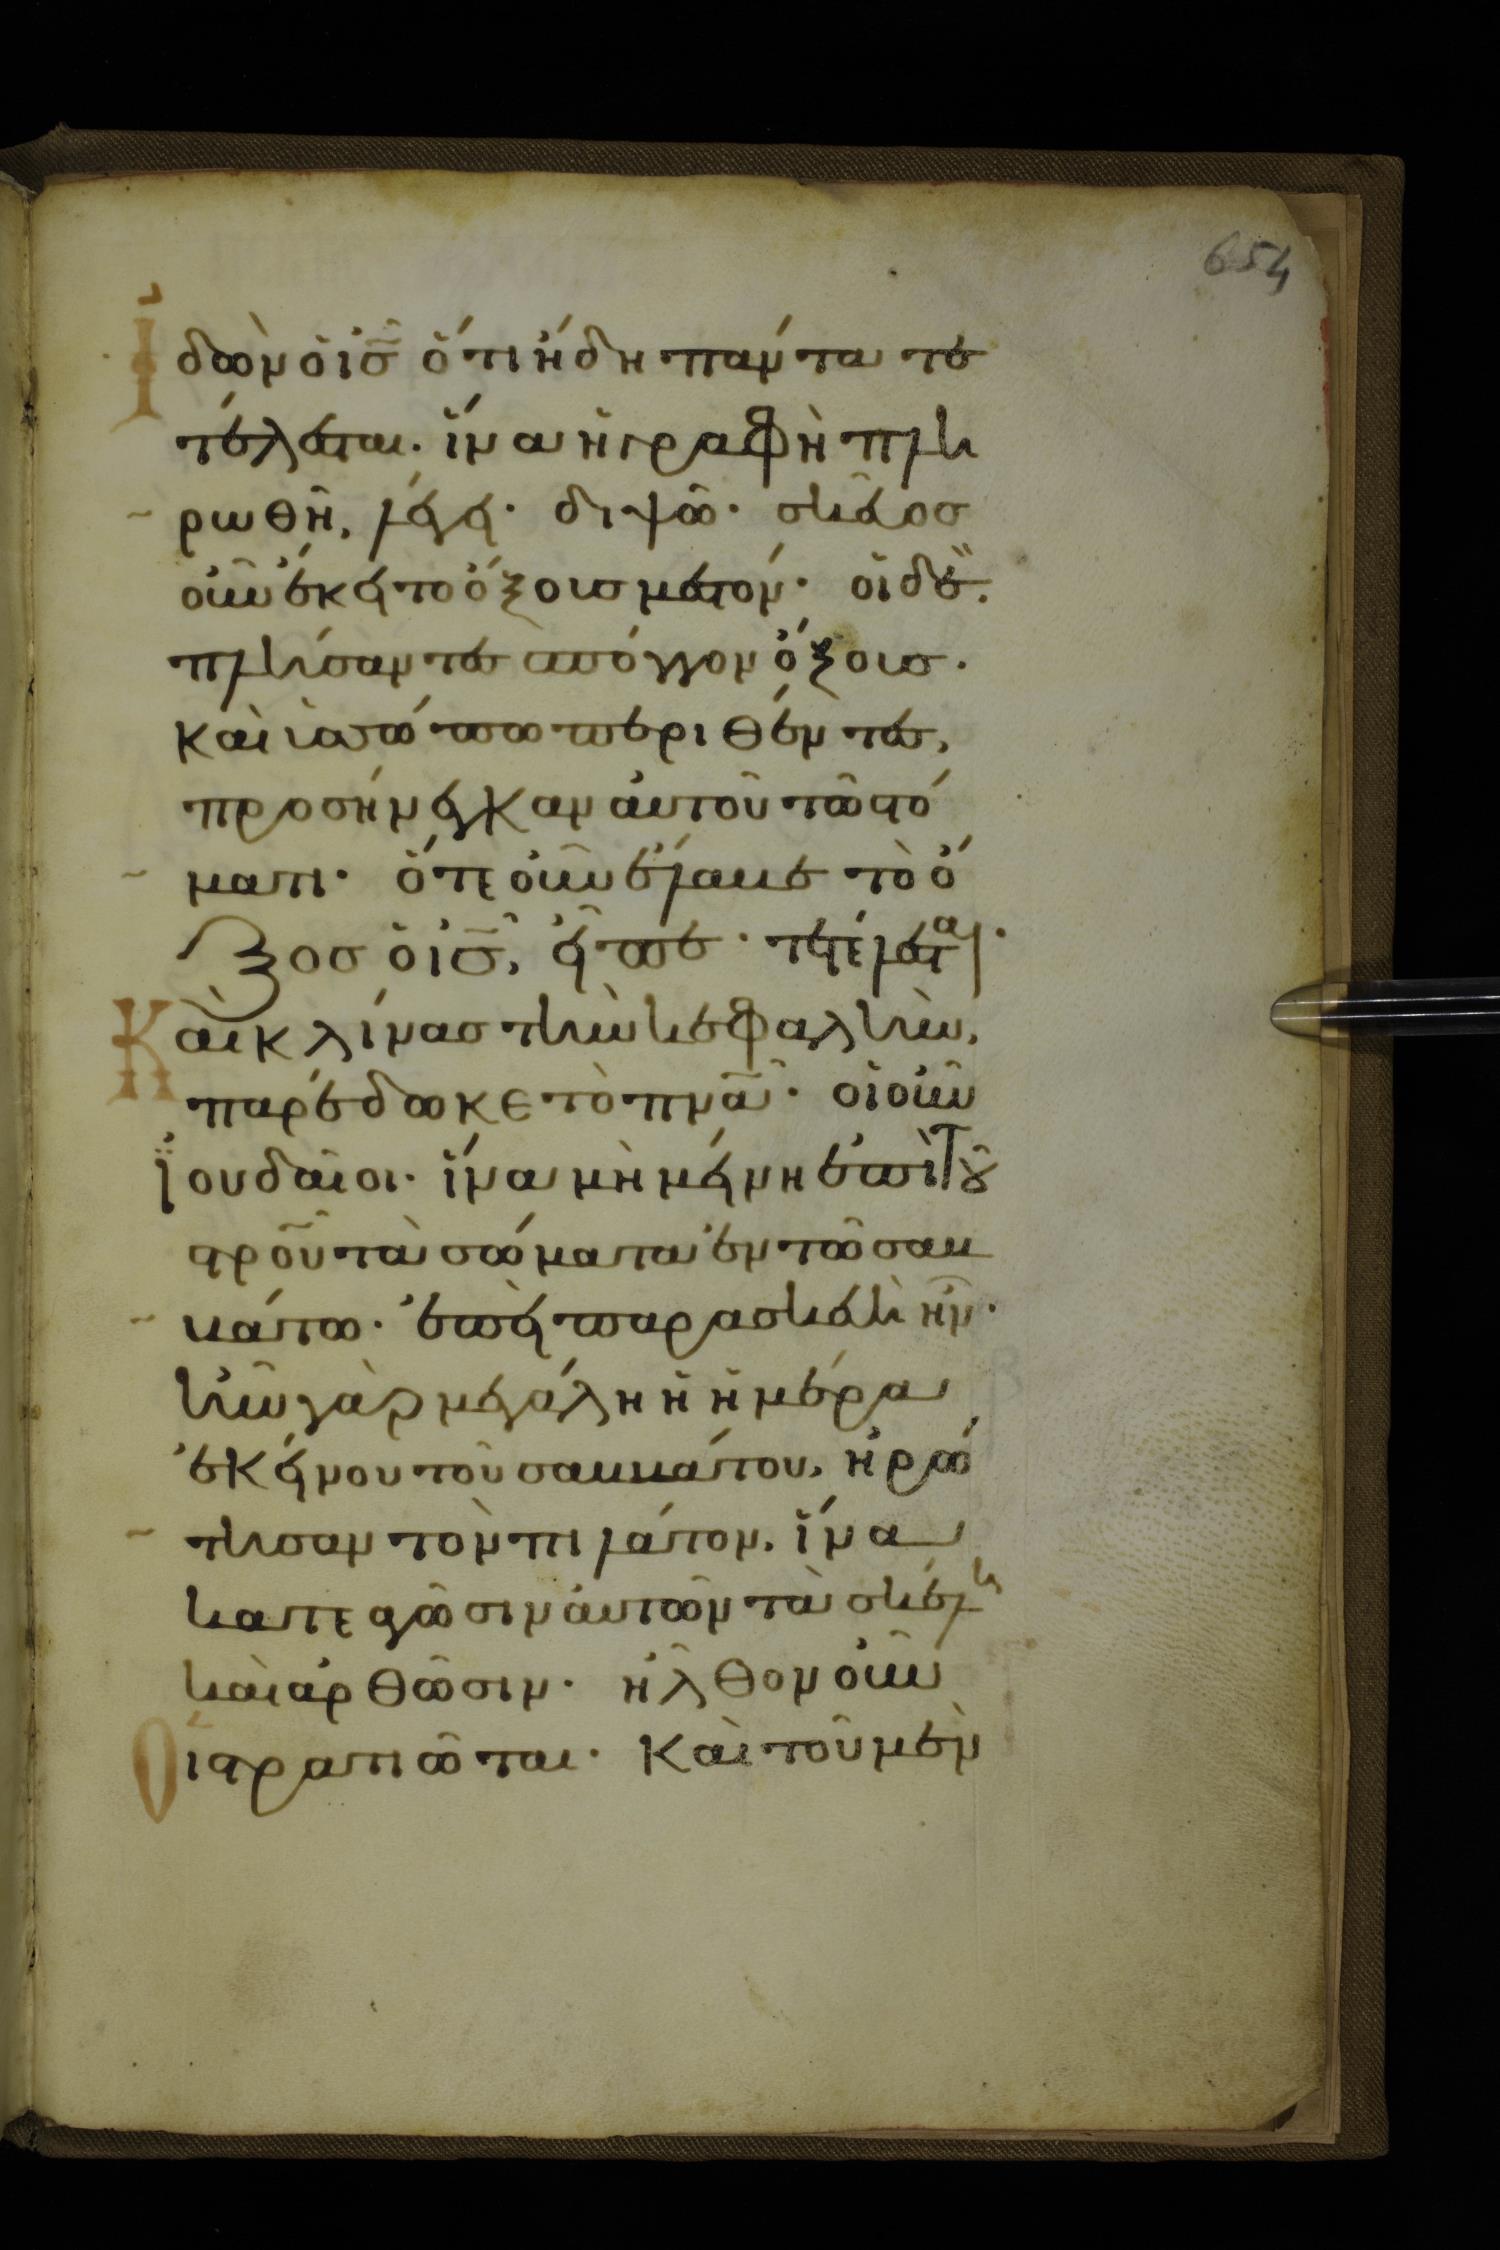 654
Ἰδὼν ὁ ις̅ ὅτι ἤδη πάντα τε
τέλεσται. ἵνα ἡ γραφὴ πλη
ρωθῆ, λέγει· διψῶ· σκεῦος
οὖν ἔκειτο ὄξους μεστόν· οἱ δὲ.
πλήσαντες σπόγγον ὄξους.
καὶ ὑσώπω περιθέντες,
προσήνεγκαν αὐτοῦ τῶ στό
ματι· ὅτε οὖν ἔλαβε τὸ ὄ
ξος ὁ ις̅, εἶπε· τετέλεσται·
Καὶ κλίνας τὴν κεφαλὴν,
παρέδωκε τὸ πνα̅· οἱ οὖν
Ἰουδαῖοι· ἵνα μὴ μείνη ἐπὶ τοῦ
στρο̅υ τὰ σώματα ἐν τῶ σαβ
βάτω· ἐπεὶ παρασκευὴ ἦν·
ἦν γὰρ μεγάλη ἡ ἡμέρα
ἐκείνου τοῦ σαββάτου, ἠρώ
τησαν τὸν πιλάτον, ἵνα
κατεαγῶσιν αὐτῶν τὰ σκέλη
καὶ ἀρθῶσιν· ἦλθον οὖν
Οἱ στρατιῶται· καὶ τοῦ μὲν